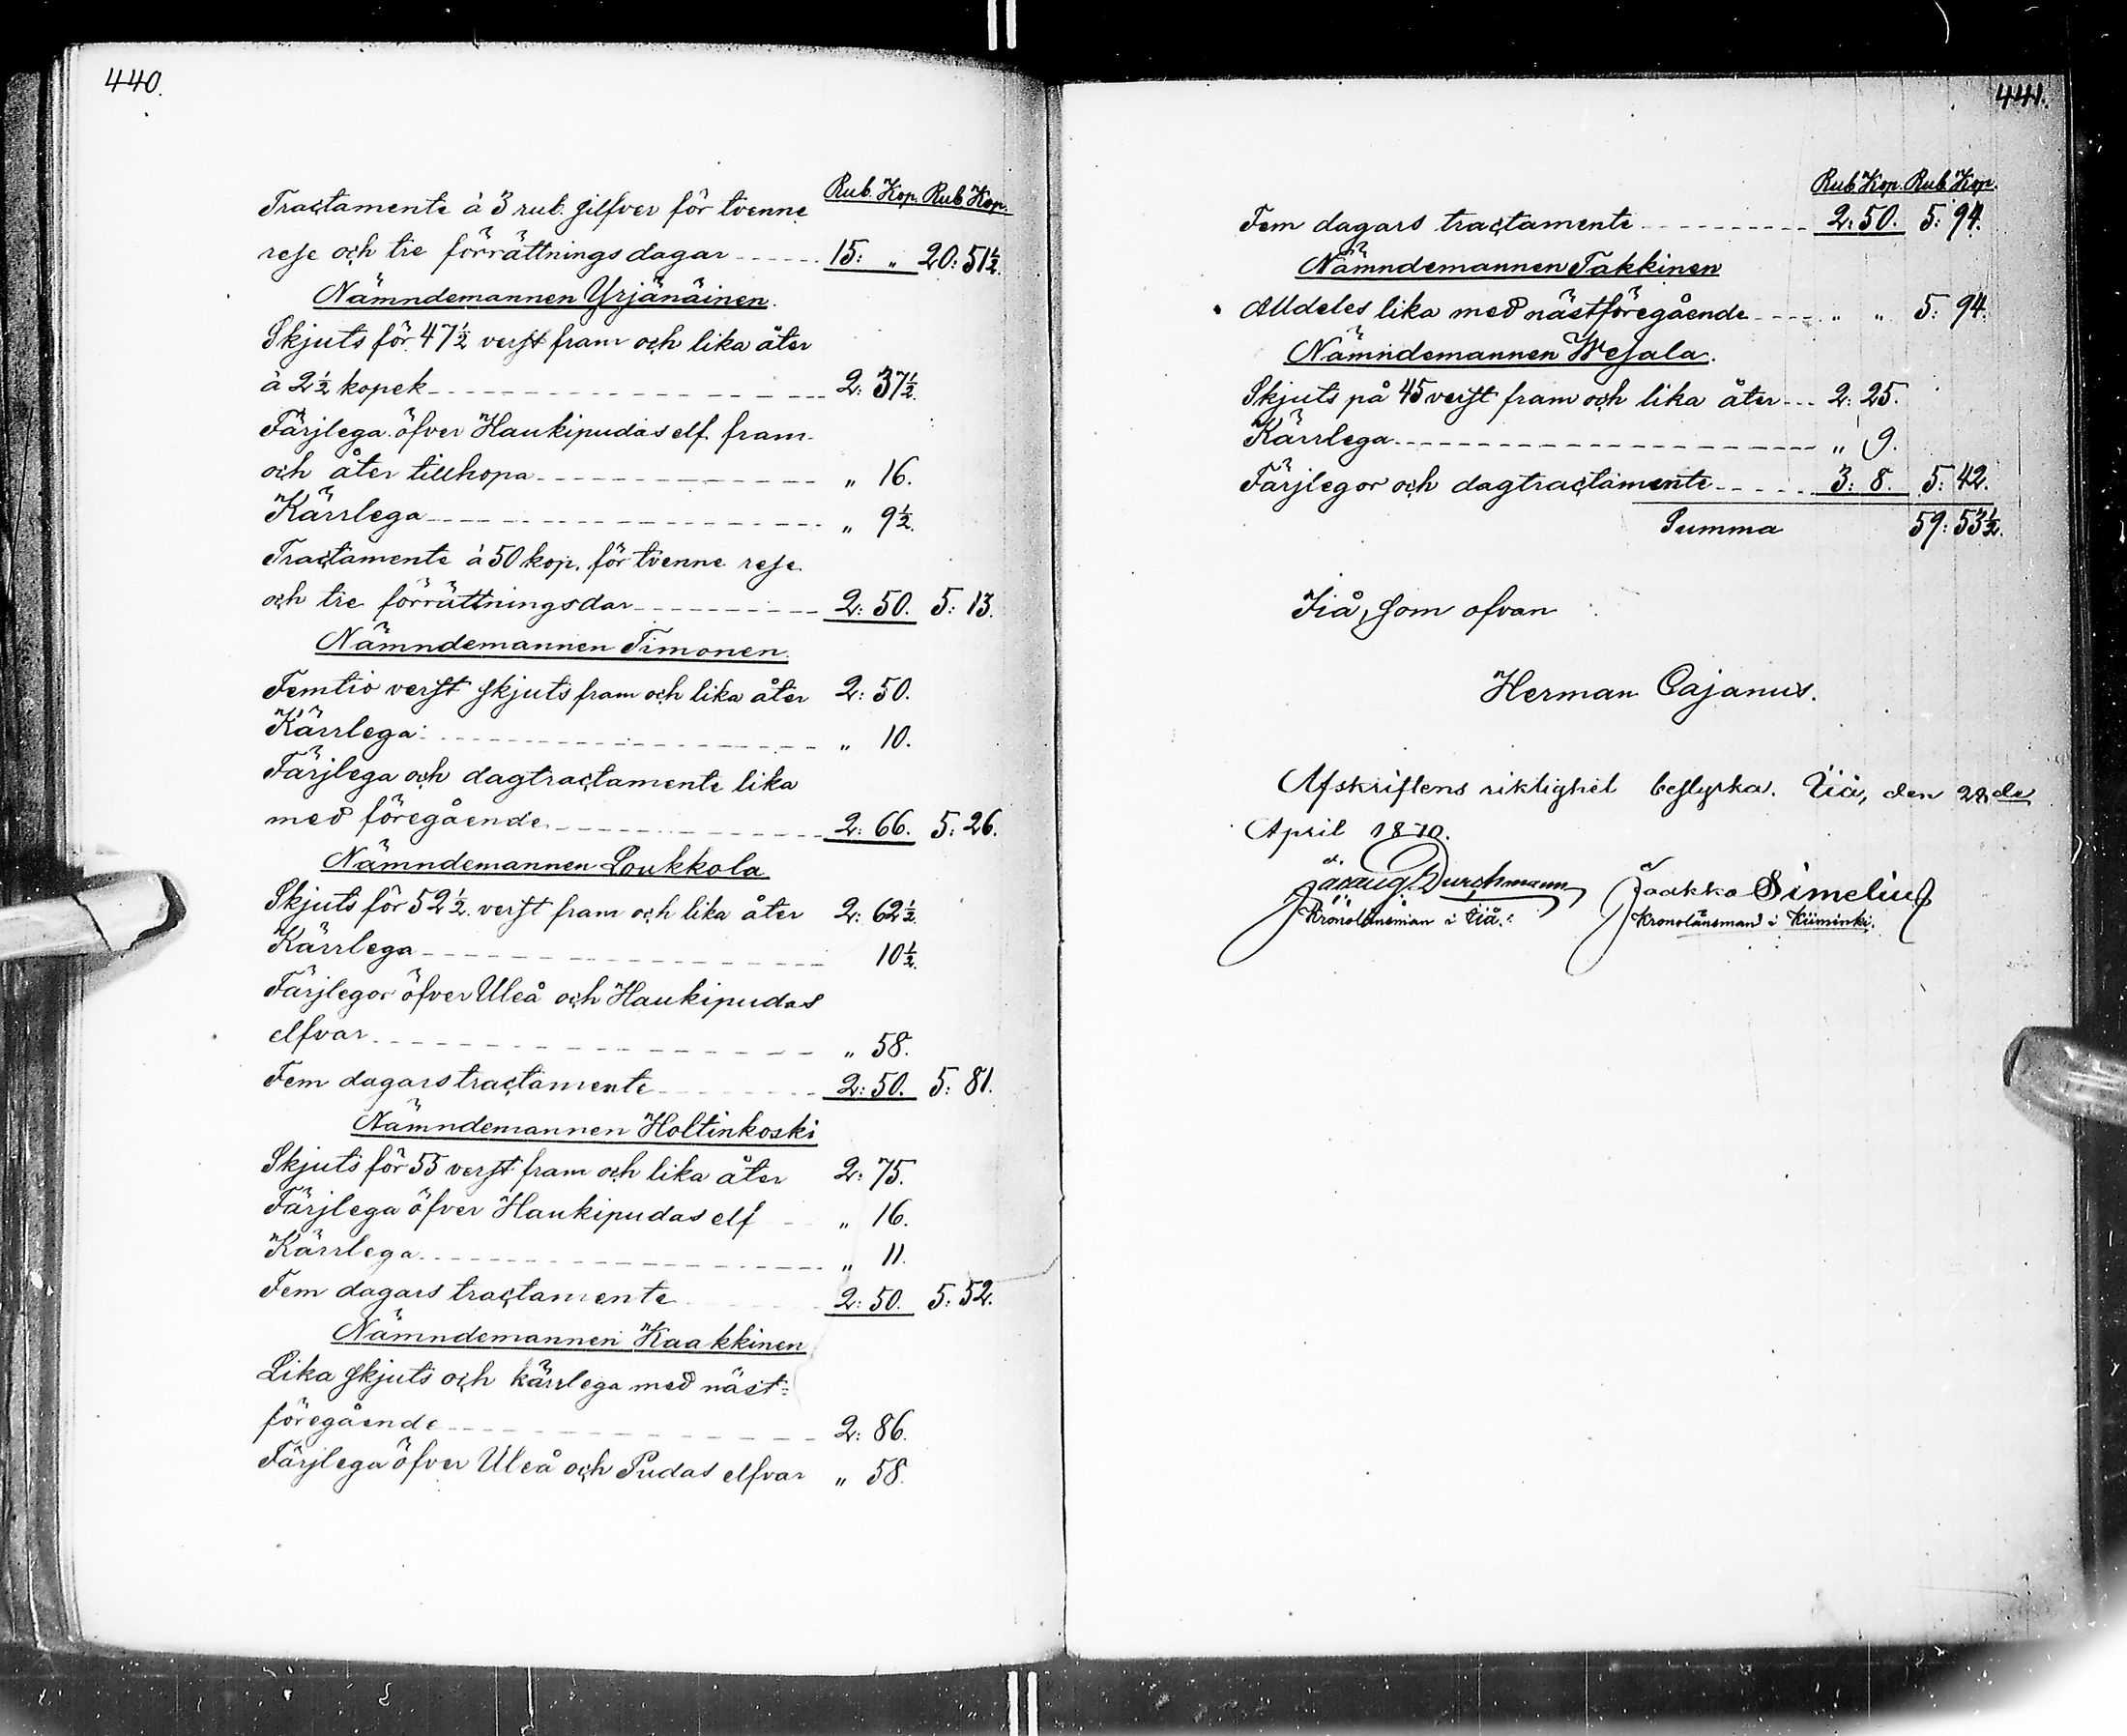 440.
Rub. Kop. Rub Kop.
Tractamente à 3 rub. silfver för tvenne
rese och tre förrättningsdagar 15: „ 20: 51½.
Nämndemannen Yrjänäinen.
Skjuts för 47½ verst fram och lika åter
à 2½ kopek 2: 37½.
Färjlega öfver Haukipudas elf fram
och åter tillhopa „ 16.
Kärrlega „ 9½.
Tractamente à 50 kop. för tvenne rese
och tre förrättningsdar 2: 50. 5: 13.
Nämndemannen Timonen.
Femtio verst skjuts fram och lika åter 2: 50.
Kärrlega: „ 10.
Färjlega och dagtractamente lika
med föregående 2: 66. 5: 26.
Nämndemannen Loukkola
Skjuts för 52½ verst fram och lika åter 2: 62½.
Kärrlega 10½.
Färjlegor öfver Uleå och Haukipudas
elfvar „ 58.
Fem dagars tractamente 2: 50. 5: 81.
Nämndemannen Holtinkoski
Skjuts för 55 verst fram och lika åter 2: 75.
Färjlega öfver Haukipudas elf „ 16.
Kärrlega „ 11.
Fem dagars tractamente 2: 50. 5: 52.
Nämndemannen Kaakkinen
Lika skjuts och kärrlega med näst=
föregående 2: 86.
Färjlega öfver Uleå och Pudas elfvar „ 58.
441.
Rub Kop. Rub Kop.
Fem dagars tractamente 2: 50. 5: 94.
Nämndemannen Takkinen
Alldeles lika med nästföregående „ „ 5: 94.
Nämndemannen Wesala.
Skjuts på 45 verst fram och lika åter 2: 25.
Kärrlega „ 9.
Färjlegor och dagtractamente 3: 8. 5: 42.
Summa 59: 53½.
Iiå, som ofvan
Herman Cajanus.
Afskriftens riktighet bestyrka. Iiå, den 28de
April 1870.
Durchmann Jaakko Simelius
Kronolänsman i Iiå. Kronolänsman i Kiiminki.